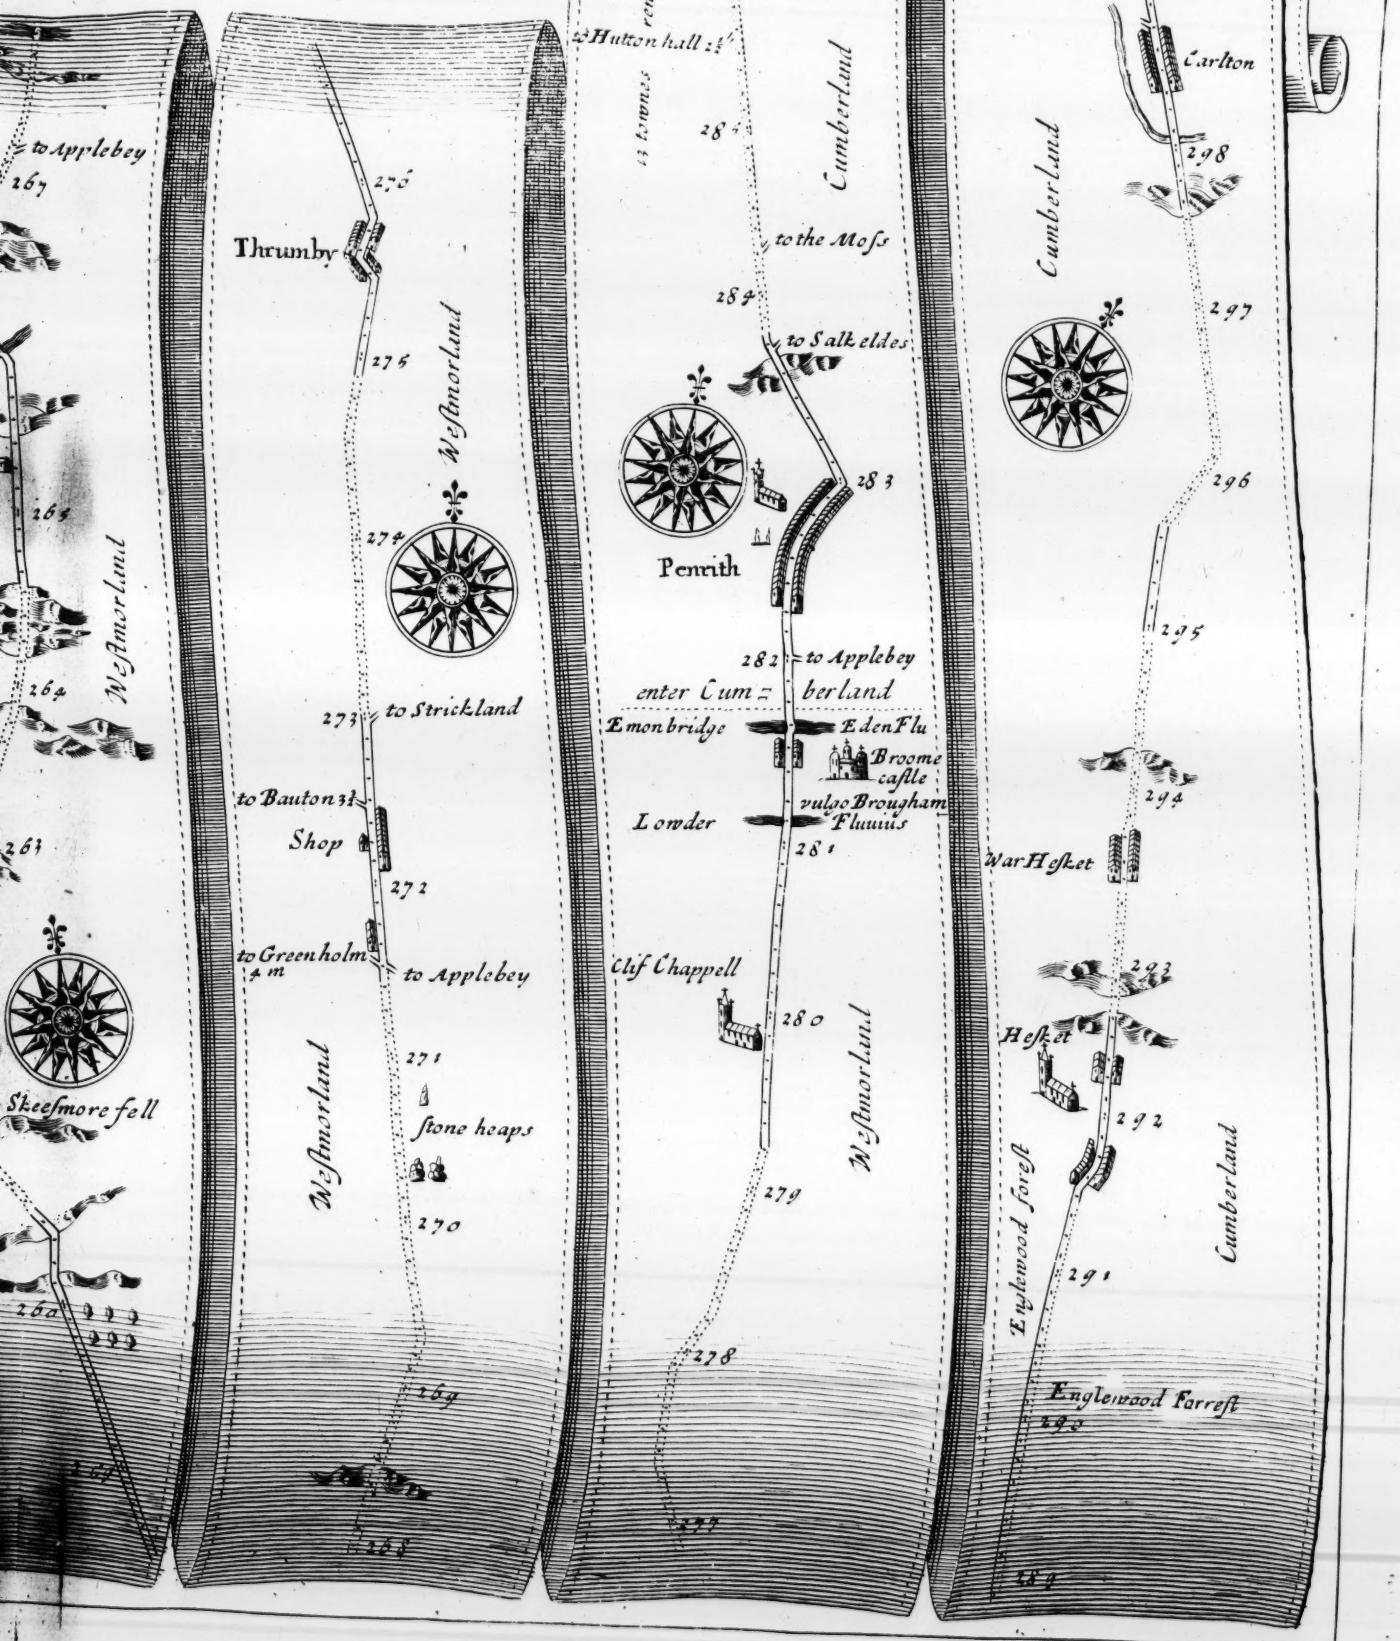 to Applebey
267
265
Weſtmorland
264
263
Skeeſmore fell
260
276
Thrumby
275
Weſtmorland
274
273
to Strickland
to Bauton 3¾
Shop
272
to Greenholm
4 m
to Applebey
271
ſtone heaps
Weſtmorland
270
269
268
to Hutton hall
Cumberland
to the Moſs
284
to Salkeldes
283
Penrith
282
to Applebey
enter Cum = berland
Emonbridge
Eden Flu
Broome
caſtle
vulgo Brougham
Lowder
Fluuius
281
Clif Chappell
280
Weſtmorland
279
278
277
Carlton
298
Cumberland
297
296
295
294
War Heſket
293
Heſket
292
Englewood foreſt
Cumberland
291
Englewood Forreſt
290
289